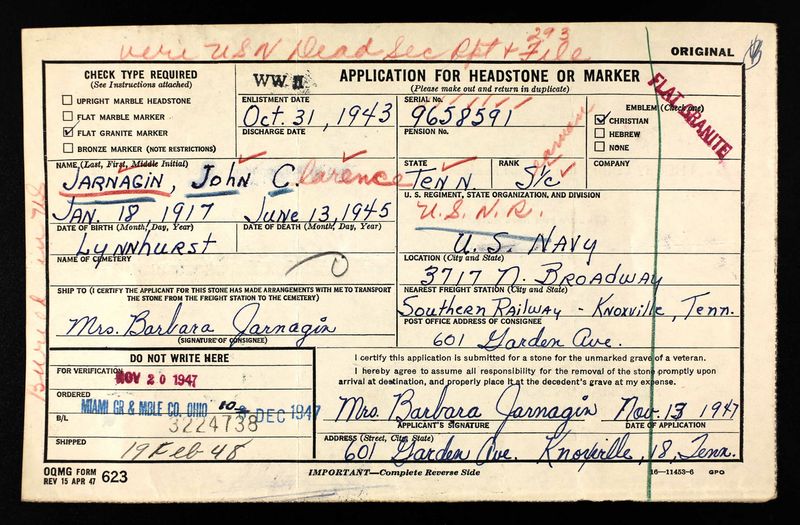 were USN Dead Sec Rpt & File 293
ORIGINAL
CHECK TYPE REQUIRED
(See Instructions attached)
UPRIGHT MARBLE HEADSTONE
FLAT MARBLE MARKER
FLAT GRANITE MARKER
BRONZE MARKER (NOTE RESTRICTIONS)
WW II
APPLICATION FOR HEADSTONE OR MARKER
(Please make out and return in duplicate)
ENLISTMENT DATE
Oct. 31, 1943
DISCHARGE DATE
SERIAL No.
9658591
PENSION No.
EMBLEM (Check one)
CHRISTIAN
HEBREW
NONE
FLAT GRANITE
NAME (Last, First, Middle Initial)
JARNAGIN, John Clarence
STATE
TENN.
RANK
S1/c
COMPANY
JAN. 18 1917
DATE OF BIRTH (Month, Day, Year)
June 13, 1945
DATE OF DEATH (Month, Day, Year)
U. S. REGIMENT, STATE ORGANIZATION, AND DIVISION
U.S.N.R.
U. S. NAVY
Lynnhurst
NAME OF CEMETERY
LOCATION (City and State)
3717 N. BROADWAY
SHIP TO (I CERTIFY THE APPLICANT FOR THIS STONE HAS MADE ARRANGEMENTS WITH ME TO TRANSPORT THE STONE FROM THE FREIGHT STATION TO THE CEMETERY)
NEAREST FREIGHT STATION (City and State)
Southern Railway - Knoxville, Tenn.
Mrs. Barbara Jarnagin
(SIGNATURE OF CONSIGNEE)
POST OFFICE ADDRESS OF CONSIGNEE
601 Garden Ave.
Buried in
DO NOT WRITE HERE
FOR VERIFICATION
NOV 20 1947
ORDERED
MIAMI GR & MBLE CO. OHIO
DEC 1947
B/L
3224738
SHIPPED
19 Feb 48
I certify this application is submitted for a stone for the unmarked grave of a veteran.
I hereby agree to assume all responsibility for the removal of the stone promptly upon
arrival at destination, and properly place it at the decedent's grave at my expense.
Mrs. Barbara Jarnagin Nov. 13 1947
APPLICANT'S SIGNATURE
DATE OF APPLICATION
ADDRESS (Street, City, State)
601 Garden Ave. Knoxville, 18, Tenn.
OQMG FORM 623
REV 15 APR 47
IMPORTANT—Complete Reverse Side
16—11453-6 GPO